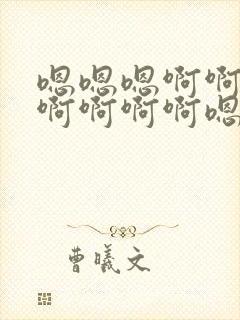 嗯嗯嗯啊啊
啊啊啊啊嗯
曹曦文